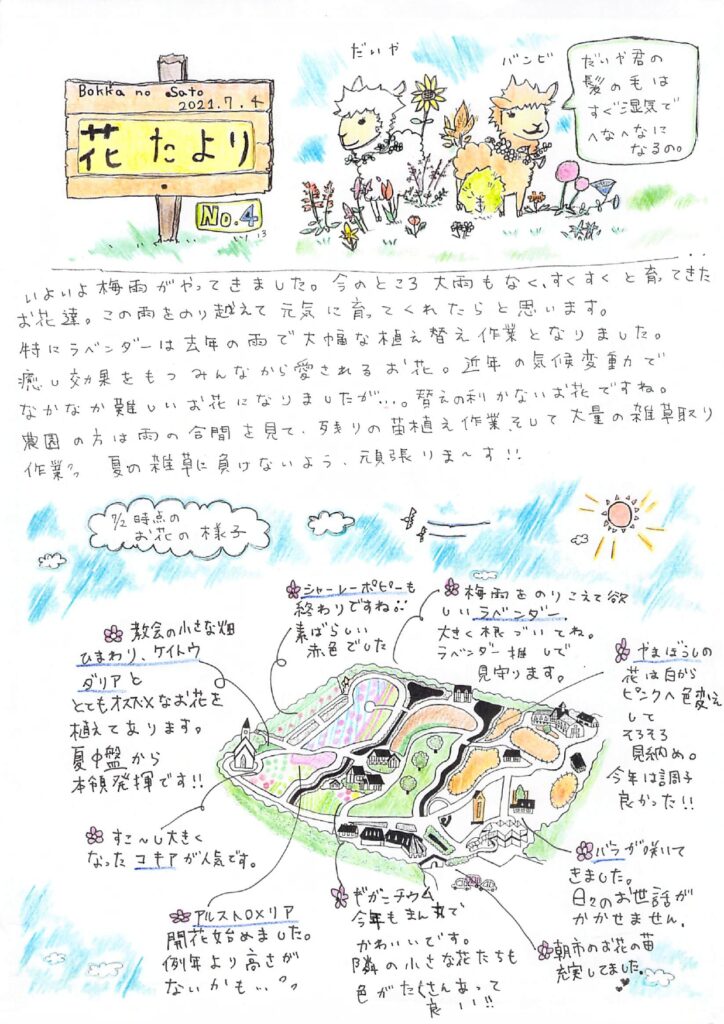 Bokka no Sato
2021.7.4
花たより
No.4
だいや
バンビ
だいや君の
髪の毛は
すぐ湿気で
へなへなに
なるの。
いよいよ梅雨がやってきました。今のところ大雨もなく、すくすくと育ってきた
お花達。この雨をのり越えて元気に育ってくれたらと思います。
特にラベンダーは去年の雨で大幅な植え替え作業となりました。
癒し効果をもつみんなから愛されるお花。近年の気候変動で
なかなか難しいお花になりましたが…。替えの利かないお花ですね。
農園の方は雨の合間を見て、残りの苗植え作業そして大量の雑草取り
作業 夏の雑草に負けないよう、頑張りま〜す!!
7/2時点の
お花の様子
シャーレーポピーも
終わりですね
素ばらしい
赤色でした
梅雨をのりこえて欲
しいラベンダー
大きく根づいてね。
ラベンダー推しで
見守ります。
教会の小さな畑
ひまわり、ケイトウ
ダリアと
とてもオススメなお花を
植えてあります。
夏中盤から
本領発揮です!!
やまぼうしの
花は白から
ピンクへ色変え
して
そろそろ
見納め。
今年は調子
良かった!!
すこ〜し大きく
なったコキアが人気です。
バラが咲いて
きました。
日々のお世話が
かかせません。
アルストロメリア
開花始めました。
例年より高さが
ないかも…
ギガンチウム
今年もまん丸で
かわいいです。
隣の小さな花たちも
色がたくさんあって
良い!!
朝市のお花の苗
充実してました。